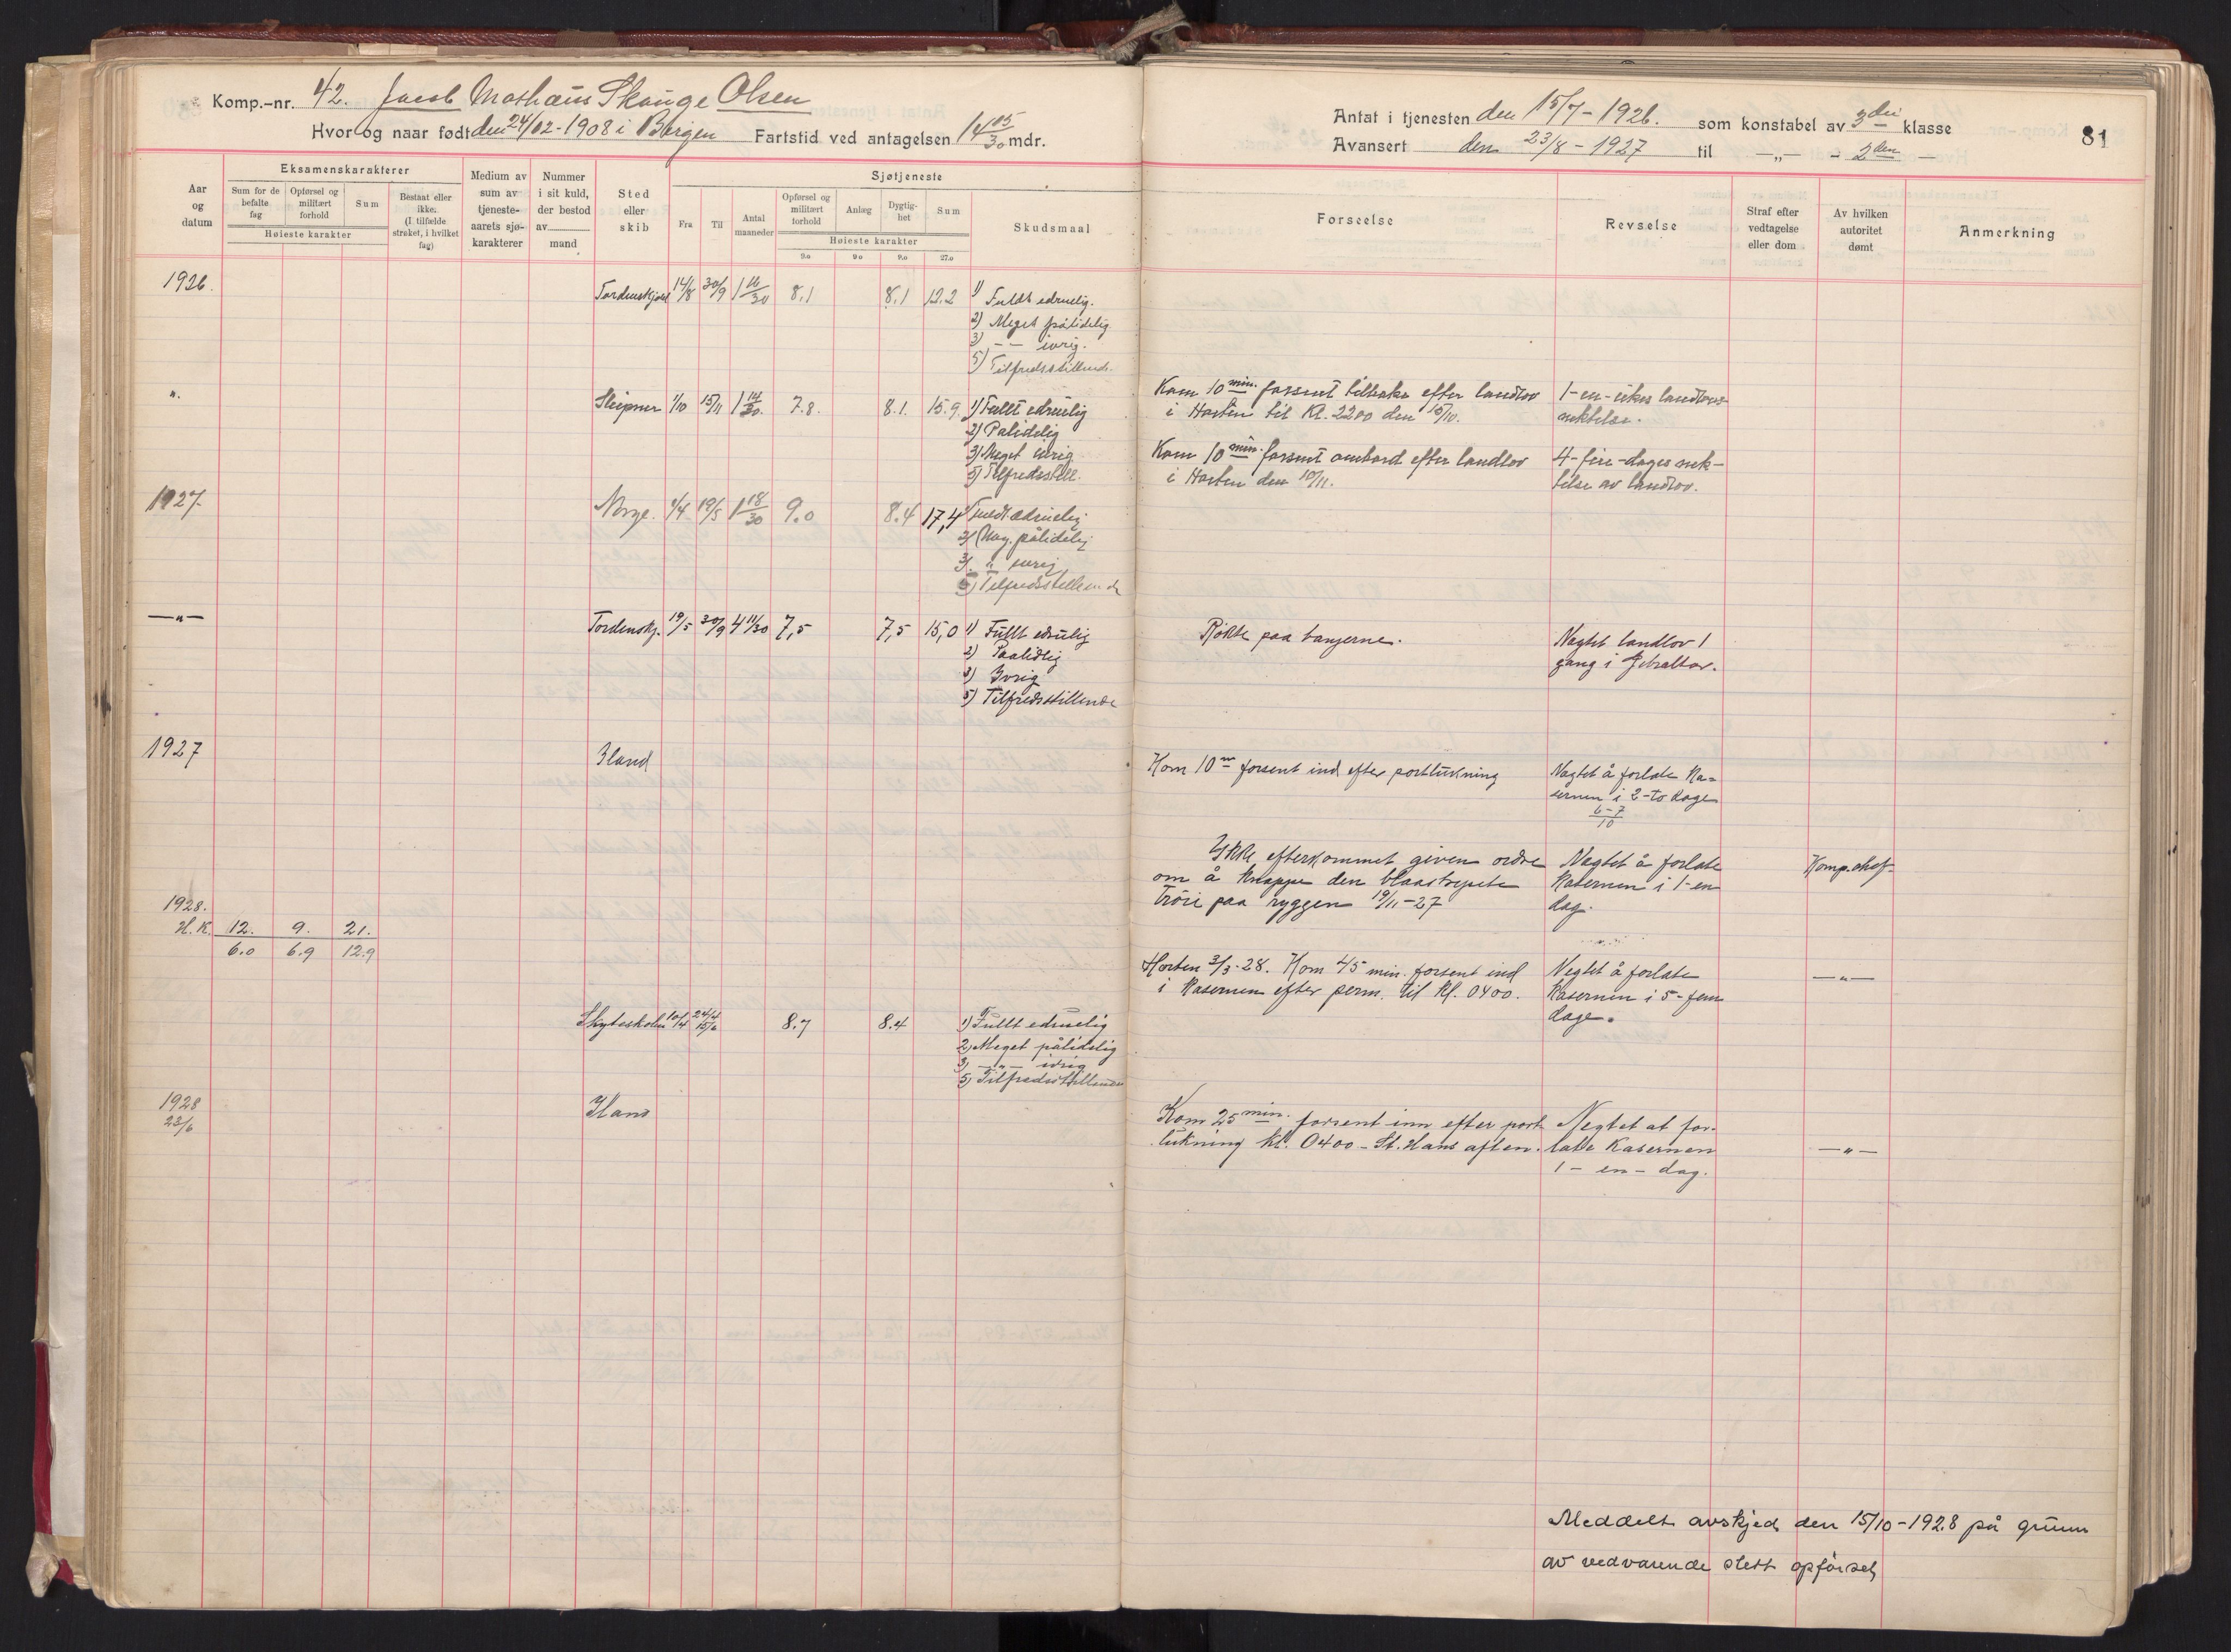 Komp.-nr. 42. Jacob Mathæus Skauge Olsen
Hvor og naar født den 24/02-1908 i Bergen Fartstid ved antagelsen 14 05/30 mdr.
Aar og datum
Eksamenskarakterer
Sum for de befalte fag
Opførsel og militært forhold
Sum
Høieste karakter
Bestaat eller ikke. (I tilfælde strøket, i hvilket fag)
Medium av sum av tjeneste-aarets sjø-karakterer
Nummer i sit kuld, der bestod av mand
Sted eller skib
Sjøtjeneste
Fra
Til
Antal maaneder
Opførsel og militært forhold
Anlæg
Dygtig-het
Sum
Høieste karakter
9.0 9.0 9.0 27.0
Skudsmaal
1926. Tordenskjold 14/8 30/9 1 16/30 8,1 8,1 1) Fuldt edruelig.
2) Meget pålidelig
3) – – ivrig.
5) Tilfredsstillende.
". Sleipner 1/10 15/11 1 14/30. 7.8. 8.1. 15.9. 1) Fullt edruelig
2) Palidelig
3) Meget ivrig
5) Tilfredsstill.
1927. Norge. 1/4 19/5 1 18/30 9.0 8.4 17,4 Fuldt edruelig
2) Meg. pålidelig
3) " ivrig
5) Tilfredsstillende
—"— Tordenskj. 19/5 30/9 4 11/30 7,5 7,5 15,0 1) Fullt edrulig
2) Paalidlig
3) Ivrig
5) Tilfredsstillende
1927 Iland
1928.
H.K. 12. 9. 21.
6.0 6.9 12.9
Skyteskolen 10/4 24/4 15/6 8.7 8.4 1) Fullt edruelig
2) Meget pålidelig
3) —"— ivrig
5) Tilfredsstillende
1928 Iland
23/6
Antat i tjenesten den 15/7-1926. som konstabel av 3die klasse
81
Avansert den 23/8-1927 til —„— - 2den —
Forseelse
Revselse
Straf efter vedtagelse eller dom
Av hvilken autoritet dømt
Anmerkning
Kom 10 min. forsent tilbake efter landlov 1-en-ukes landlovs-
i Horten til Kl. 2200 den 10/10. nektelse.
Kom 10 min. forsent ombord efter landlov 4-fire-dages nek-
i Horten den 10/11. telse av landlov.
Røkte paa banjerne. Nægtet landlov 1
gang i Gibraltar.
Kom 10 m forsent ind efter portlukning Nægtet å forlate Ka-
sernen i 2-to dage
6-7
10
Ikke efterkommet given ordre Nægtet å forlate Komp.chef.
om å knappe den blaastripete Kasernen i 1-en
Trøie paa ryggen 19/11-27 dag.
Horten 3/3-28. Kom 45 min. forsent ind Negtet å forlate —"—
i Kasernen efter perm. til Kl. 0400. Kasernen i 5-fem
dage.
Kom 25 min. forsent inn efter port- Negtet at for-
lukning kl. 0400 - St. Hans aften. late Kasernen —"—
1 - en - dag.
Meddelt avskjed den 15/10-1928 på grunn
av vedvarende slett opførsel